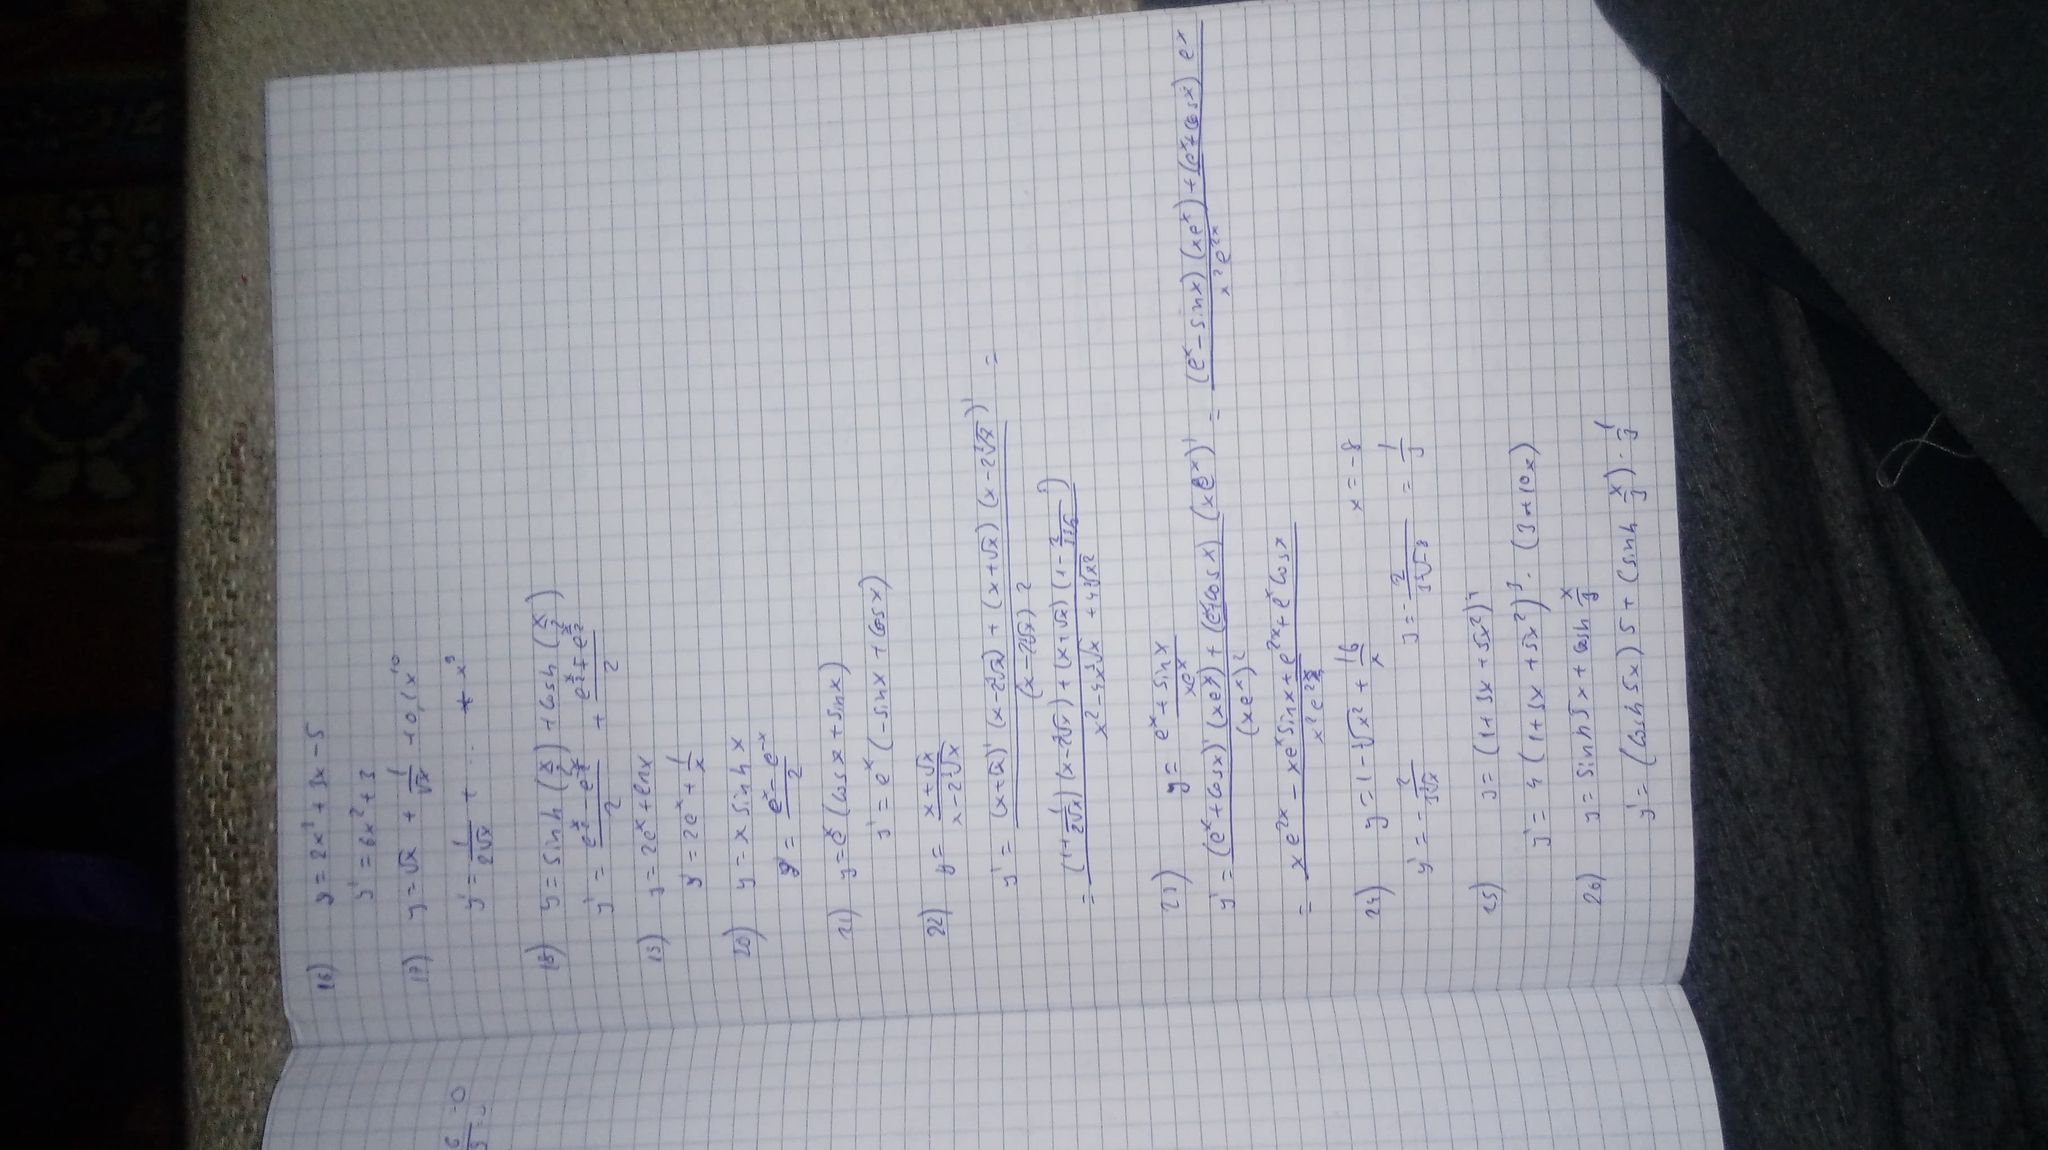 16) y = 2x³ + 3x - 5
y' = 6x² + 3
17) y = √x + 1/√x + 0,1x¹⁰
y' = 1/(2√x) + ... + x⁹
18) y = sinh (x/2) + cosh (x/2)
19) y = 2eˣ + lnx
y' = 2eˣ + 1/x
20) y = x sinh x
y = (eˣ - e⁻ˣ)/2
21) y = eˣ (cosx + sinx)
y' = eˣ (-sinx + cosx)
22) y = (x + √x)/(x - 2∛x)
y' = ((x+√x)' (x - 2∛x) + (x + √x) (x - 2∛x)')/(x - 2∛x)² =
23) y = (eˣ + sinx)/(xeˣ)
y' = ((eˣ + cosx)' (xeˣ) + (eˣ+cosx) (xeˣ)')/(xeˣ)² = ((eˣ - sinx) (xeˣ) + (eˣ + cosx) eˣ)/(x² e²ˣ)
= (xe²ˣ - xeˣ sinx + e²ˣ + eˣ cosx)/(x² e²ˣ)
24) y = 1 - ∛x² + 16/x x = -8
y' = - 2/(3∛x) y = - 2/(3∛-8) = 1/3
25) y = (1 + 3x + 5x²)⁴
y' = 4 (1 + 3x + 5x²)³ · (3 + 10x)
26) y = sinh 5x + cosh x/3
y' = (cosh 5x) 5 + (sinh x/3) · 1/3